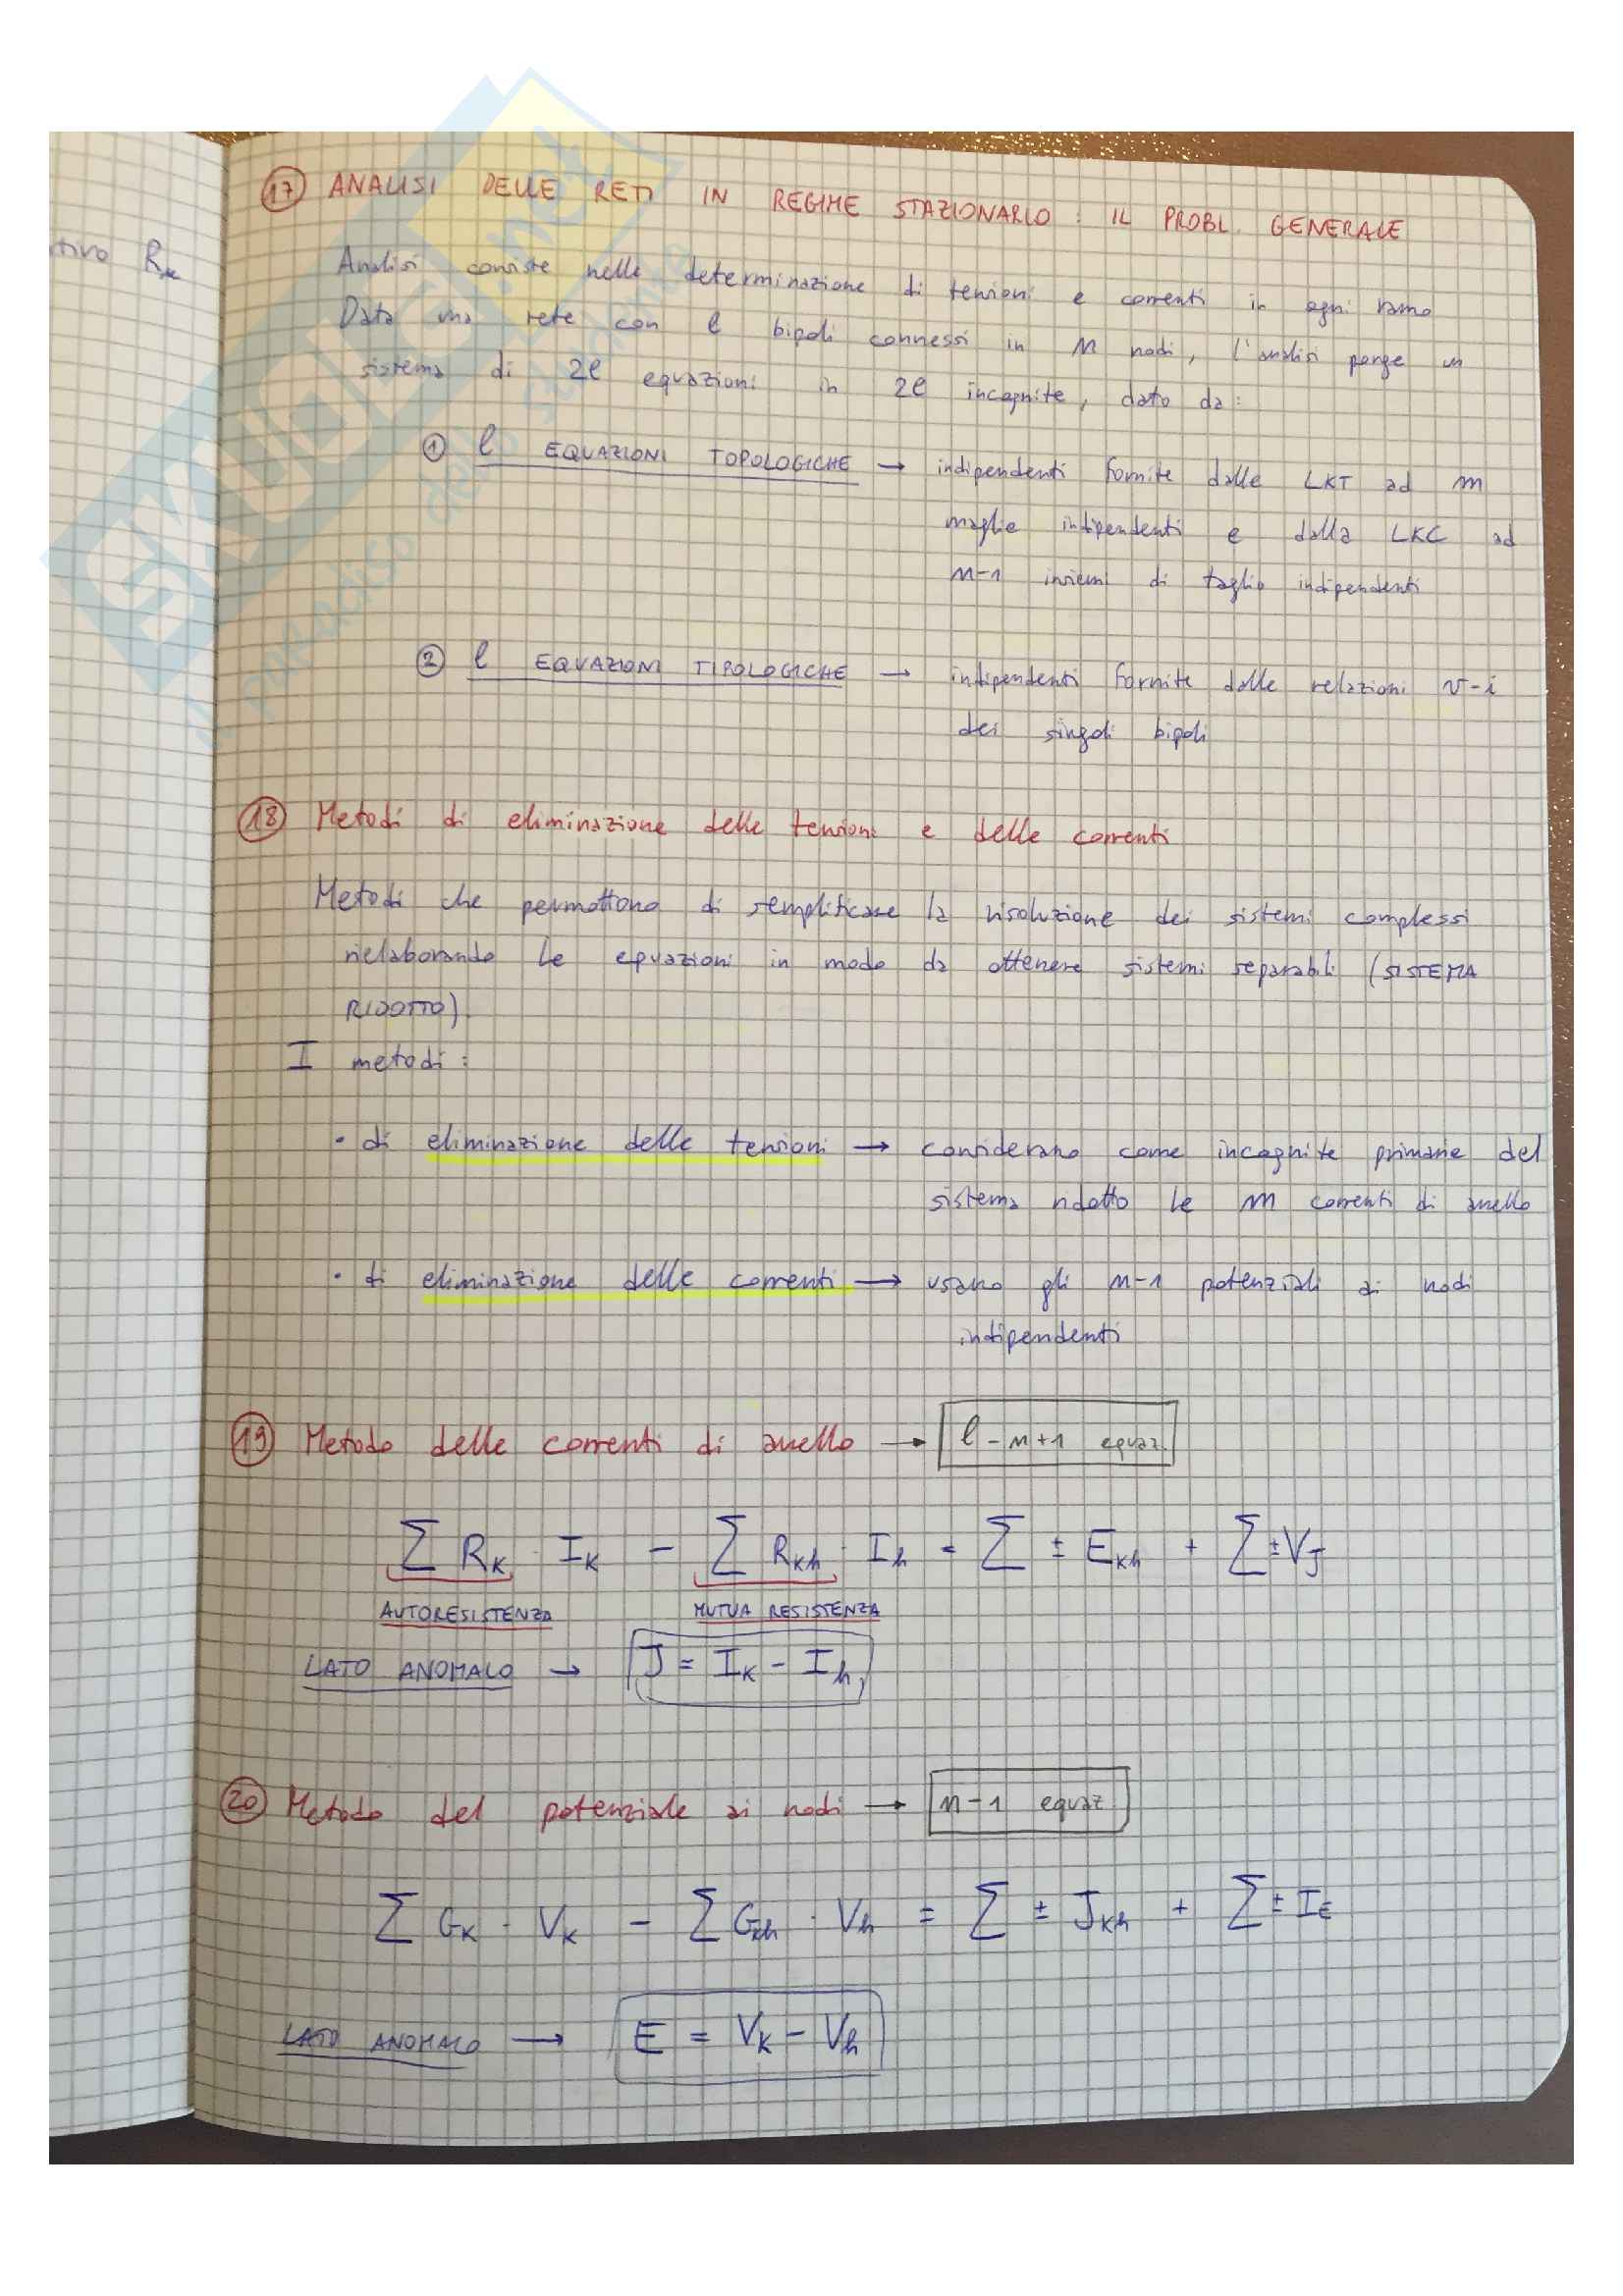 tivo Rk
17 ANALISI DELLE RETI IN REGIME STAZIONARIO : IL PROBL. GENERALE
Analisi consiste nella determinazione di tensioni e correnti in ogni ramo
Data una rete con l bipoli connessi in n nodi, l'analisi porge un
sistema di 2l equazioni in 2l incognite, dato da:
① l EQUAZIONI TOPOLOGICHE → indipendenti fornite dalle LKT ad m
maglie indipendenti e dalla LKC ad
n-1 insiemi di taglio indipendenti
② l EQUAZIONI TIPOLOGICHE → indipendenti fornite dalle relazioni v-i
dei singoli bipoli
18 Metodi di eliminazione delle tensioni e delle correnti
Metodi che permettono di semplificare la risoluzione dei sistemi complessi
rielaborando le equazioni in modo da ottenere sistemi separabili (SISTEMA
RIDOTTO)
I metodi :
• di eliminazione delle tensioni → considerano come incognite primarie del
sistema ridotto le m correnti di anello
• di eliminazione delle correnti → usano gli n-1 potenziali ai nodi
indipendenti
19 Metodo delle correnti di anello → l-n+1 equaz.
∑ Rk · Ik - ∑ Rkh · Ih = ∑ ± Ekh + ∑ ± VJ
AUTORESISTENZA MUTUA RESISTENZA
LATO ANOMALO → J = Ik - Ih
20 Metodo del potenziale ai nodi → n-1 equaz.
∑ Gk · Vk - ∑ Gkh · Vh = ∑ ± Jkh + ∑ ± IE
LATO ANOMALO → E = Vk - Vh
SKUOLA.net
il paradiso dello studente